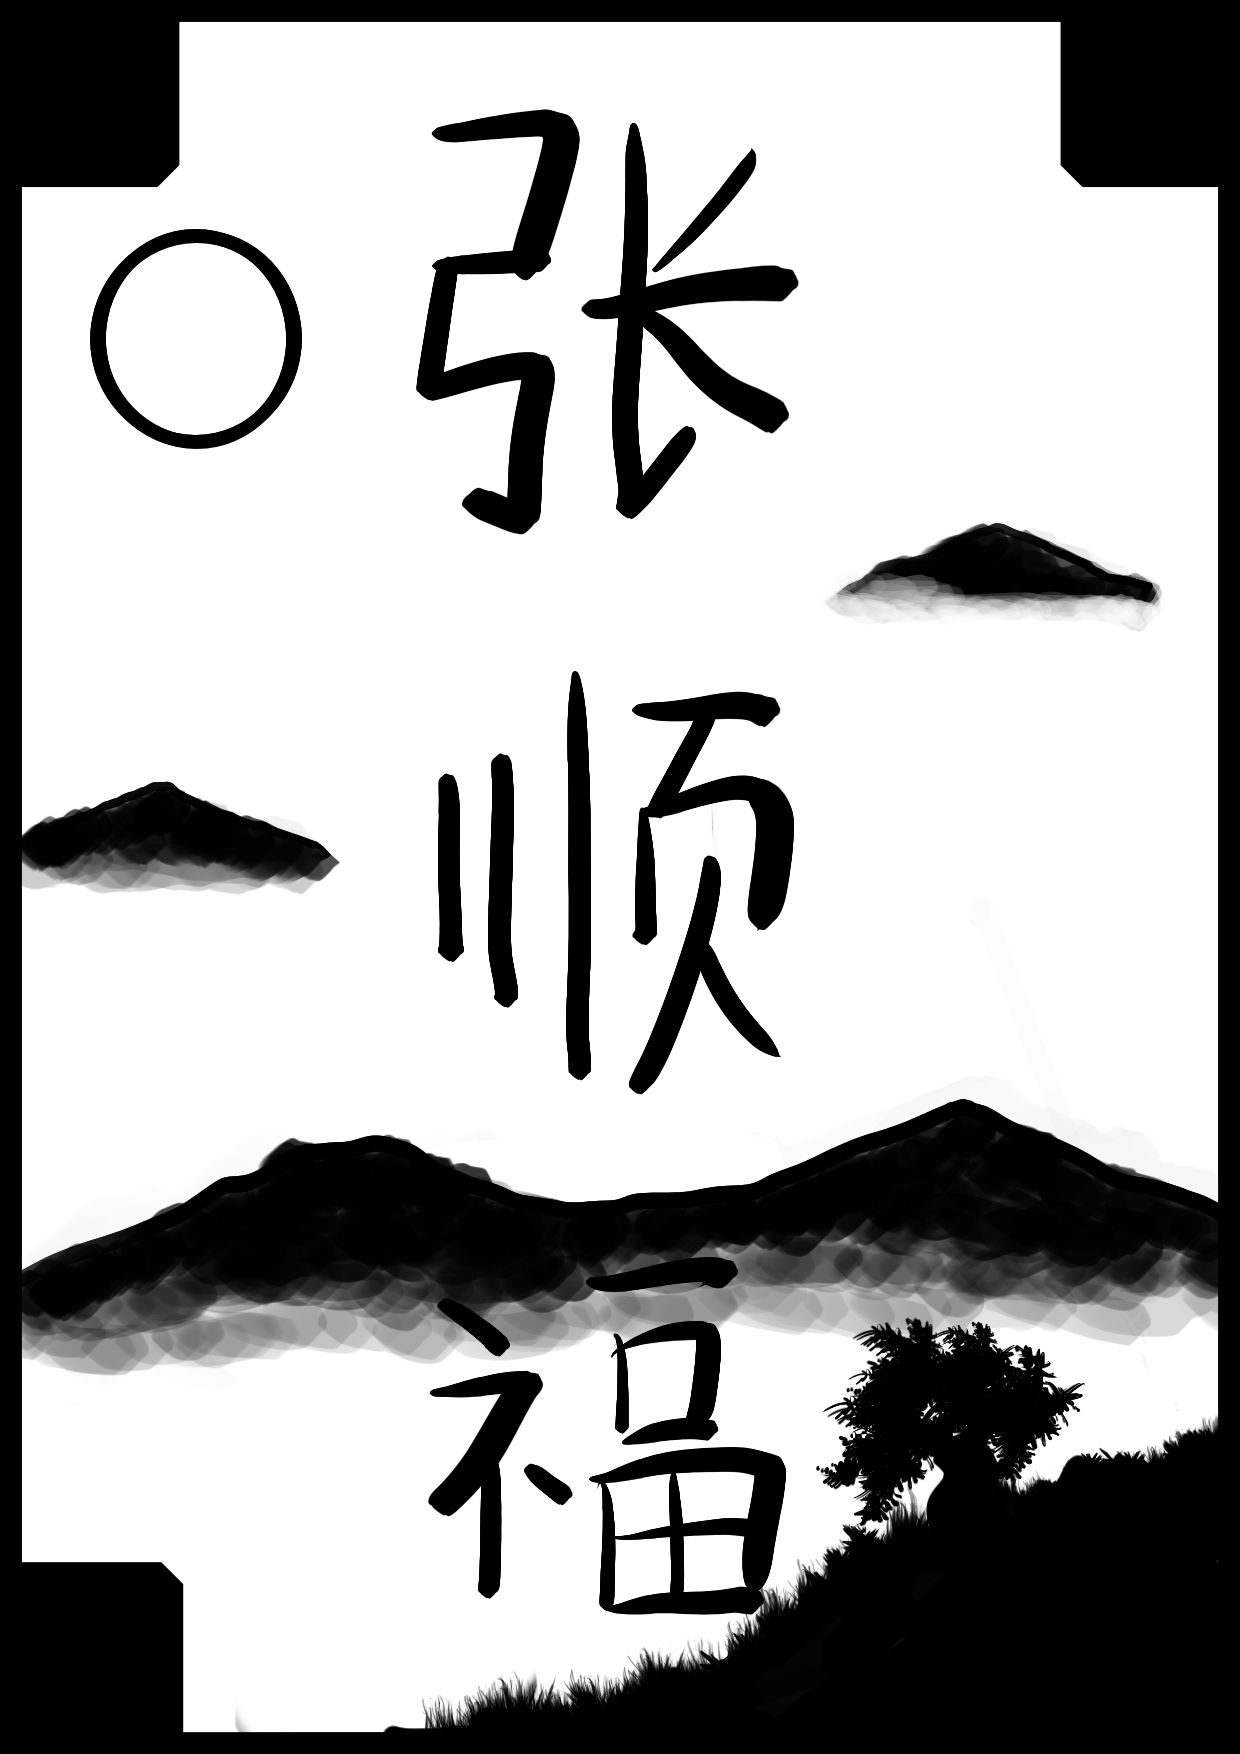 张
顺
福